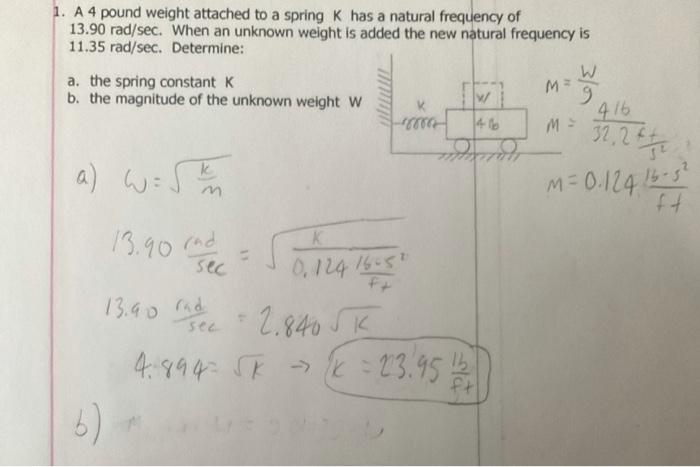 1. A 4 pound weight attached to a spring K has a natural frequency of
13.90 rad/sec. When an unknown weight is added the new natural frequency is
11.35 rad/sec. Determine:
a. the spring constant K
b. the magnitude of the unknown weight W
K
W
4 lb
M = W/g
M = 4 lb / 32.2 ft/s²
M = 0.124 lb-s²/ft
a) ω = √(k/m)
13.90 rad/sec = √(K / 0.124 lb-s²/ft)
13.90 rad/sec = 2.840 √K
4.894 = √K → K = 23.95 lb/ft
b)